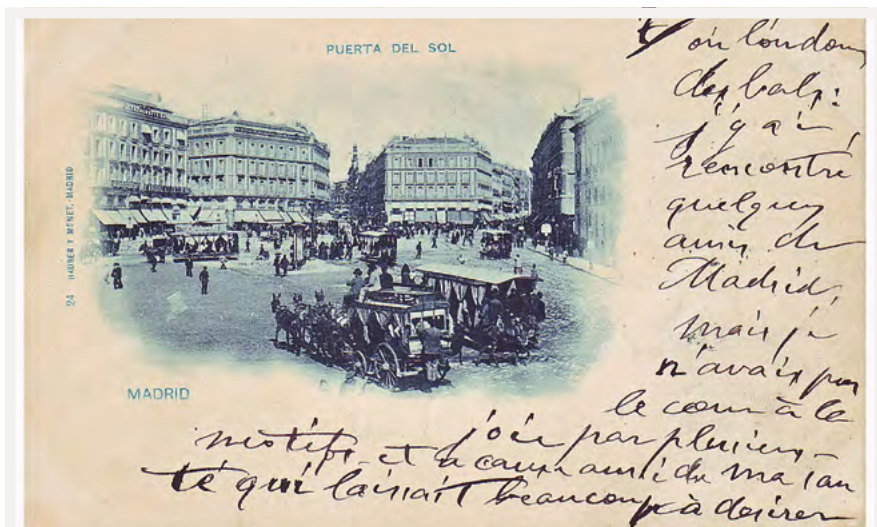 PUERTA DEL SOL
24 HAUSER Y MENET.-MADRID
MADRID
où l'on donn
des bals:
j'y ai
rencontré
quelques
amis de
Madrid,
mais je
n'avais pas
le cœur à la
joie par plusieurs
motifs, et à cause aussi de ma san
té qui laissait beaucoup à désirer